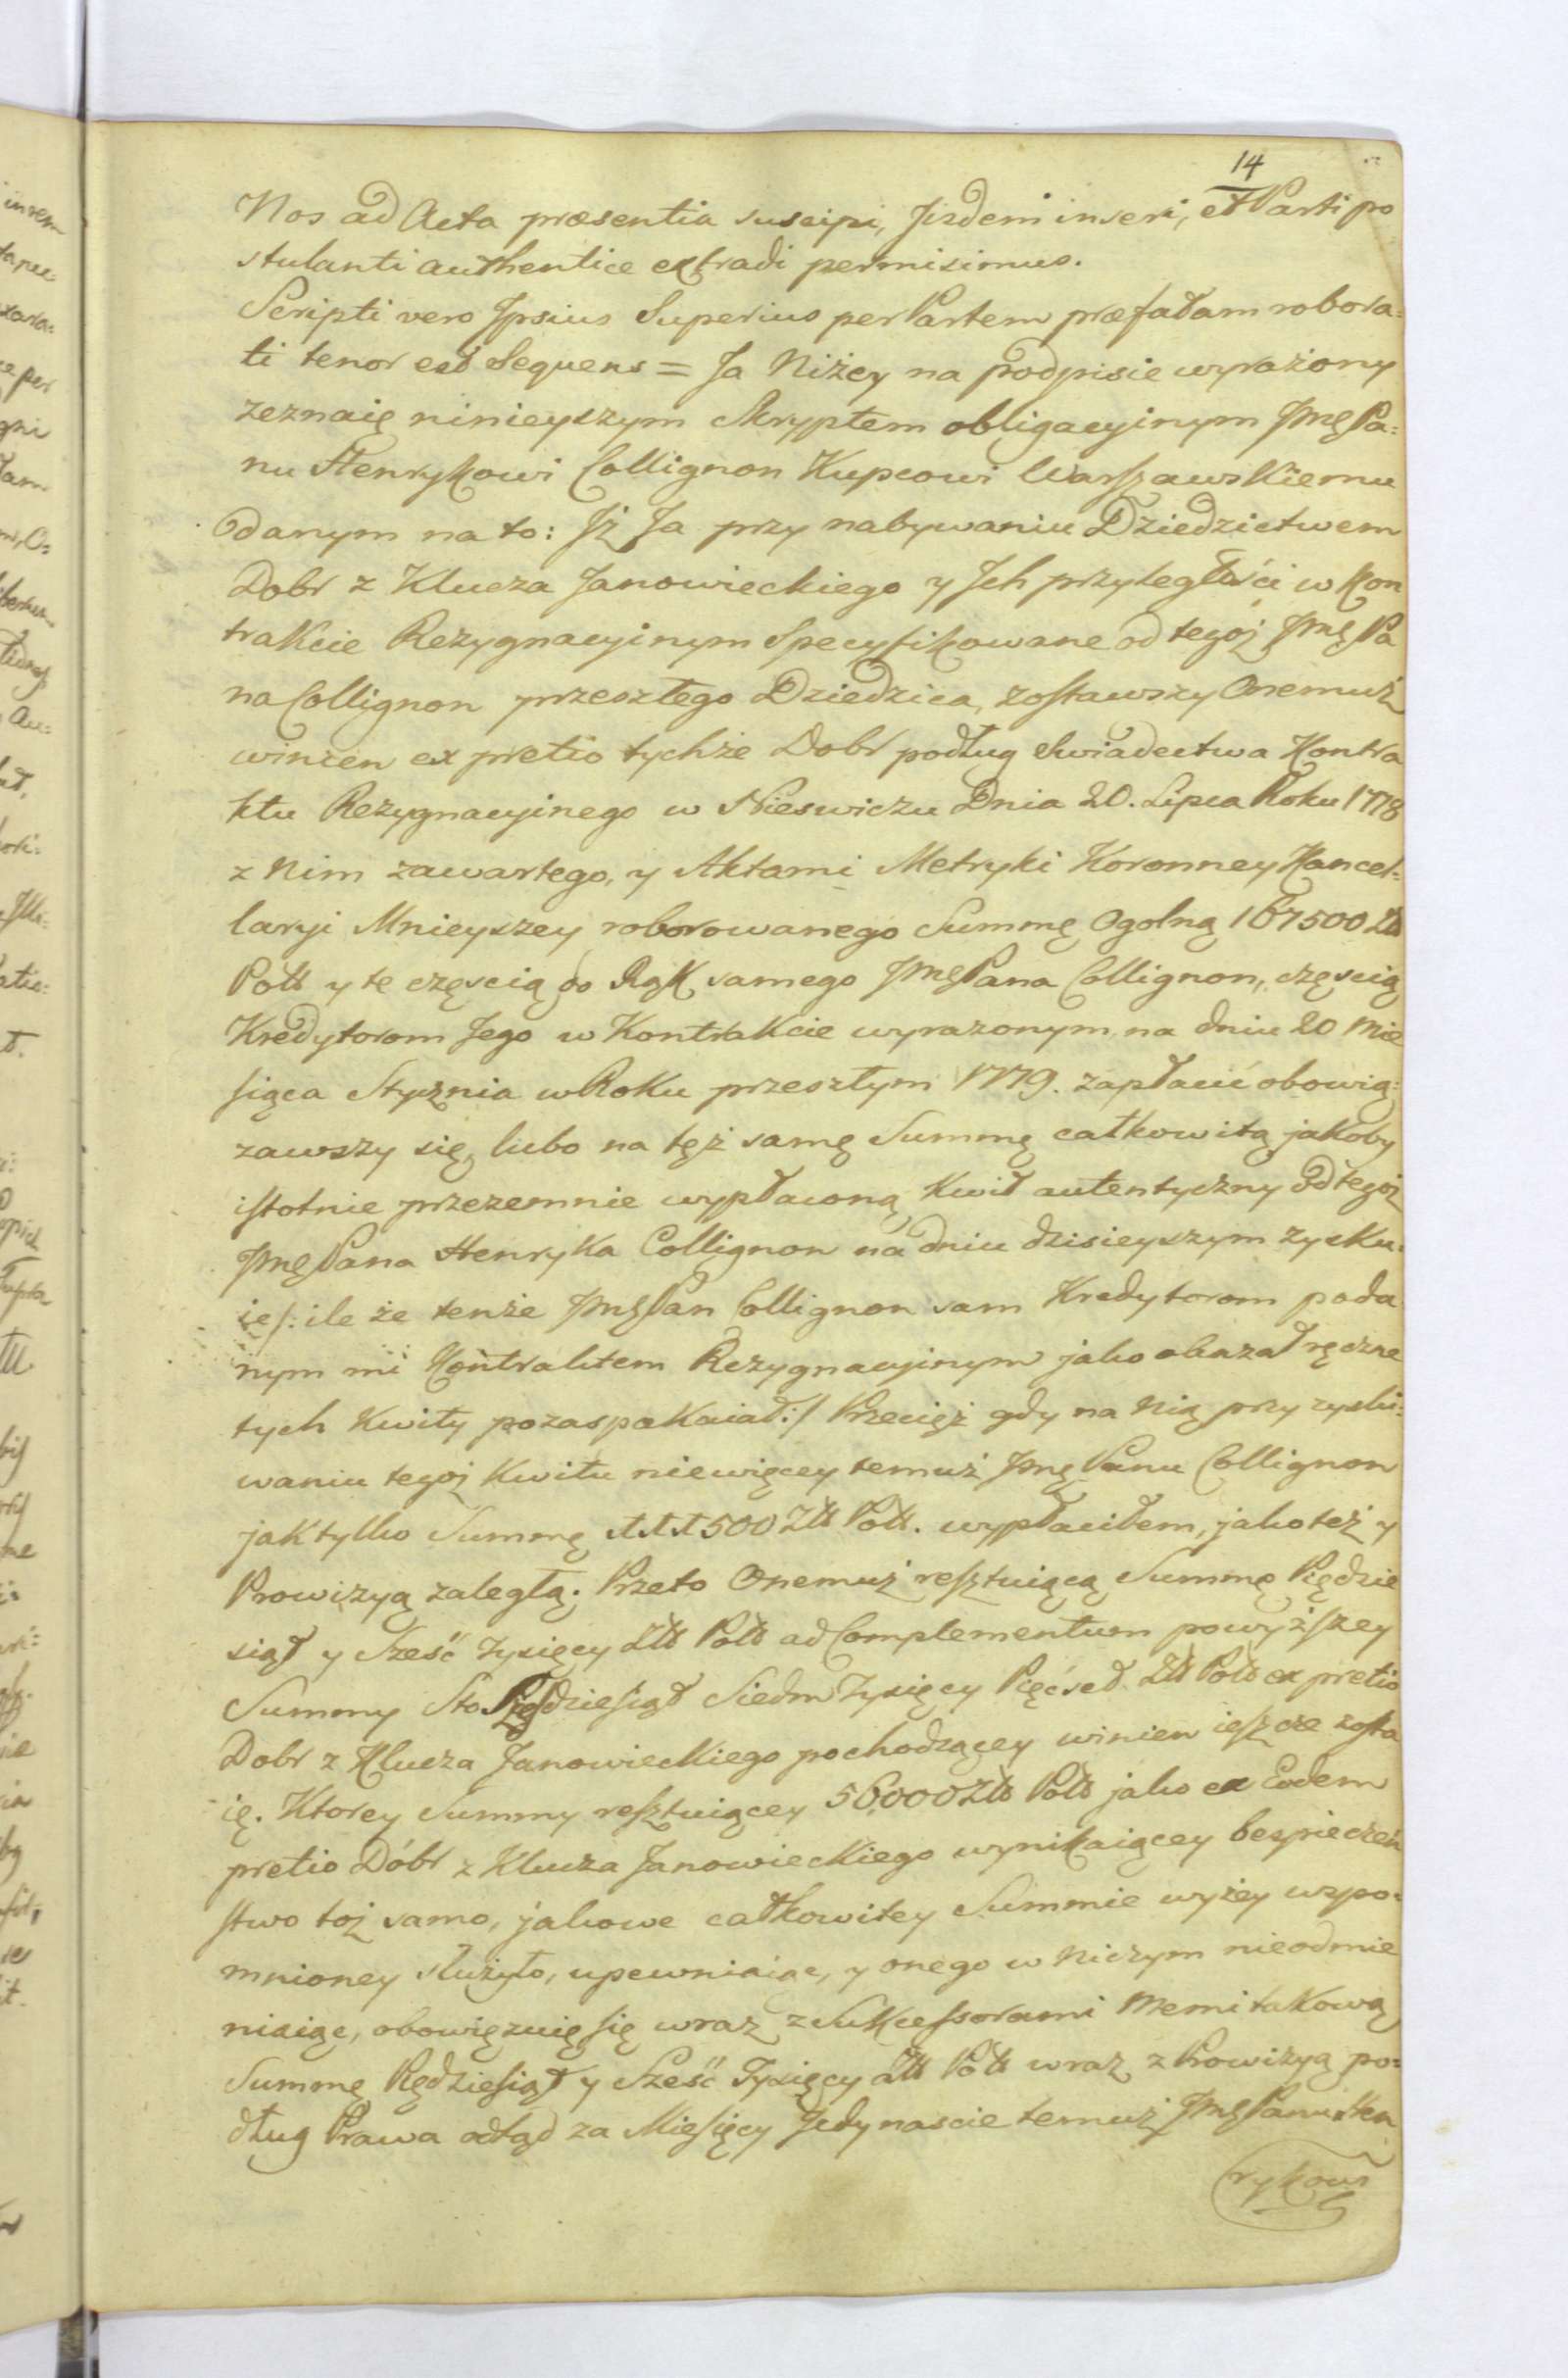 14
Nos ad Acta præsentia suscipi, Jisdem inseri, et Parti po
stulanti authentice extradi permisimus.
Scripti vero Jpsius Superius per Partem præfatam robora=
ti tenor est Sequens = Ja Niżey na podpisie wyrażony
zeznaię ninieyszym Skryptem obligacyinym Jmę Pa=
nu Henrykowi Collignon Kupcowi Warszawskiemu
danym na to: Jż Ja przy nabywaniu Dziedzictwem
Dobr z Klucza Janowieckiego y Jch przyległości w Kon
trakcie Rezygnacyinym Specyfikowane od tegoż Jmę Pa
na Collignon przeszłego Dziedzica, zostawszy Onemuż
winien ex pretio tychże Dobr podług Swiadectwa Kontra
ktu Rezygnacyinego w Nieswiczu Dnia 20. Lipca Roku 1778
z Nim zawartego, y Aktami Metryki Koronney Kancel=
laryi Mnieyszey roborowanego Summę Ogolną 167500 Złł
Poll y tę częscią do Rąk samego Jmę Pana Collignon, częscią
Kredytorom Jego w Kontrakcie wyrazonym na dniu 20 Mie
siąca Stycznia w Roku przeszłym 1779. zapłacić obowią=
zawszy się, lubo na tęż samę Summę całkowitą jakoby
istotnie przezemnie wypłaconą Kwit autentyczny Od tegoż
Jmę Pana Henryka Collignon na dniu dzisieyszym zysku=
ię /: ile że tenże Jmę Pan Collignon sam Kredytorom poda
nym mi Kontraktem Rezygnacyinym jako okazał ręczne
tych Kwity pozaspakaiał :/ Przecięż gdy na Nią przy zyski=
waniu tegoż Kwitu niewięcey temuż Jmę Panu Collignon
jak tylko Summę 111500 Złł Poll. wypłaciłem, jako też y
Prowizyą zaległą; Przeto Onemuż resztuiącą Summę Pięćdzie
siąt y Sześć tysięcy Złł Poll ad Complementum powyższey
Summy Sto Szesdziesiąt Siedm Tysięcy Pięćset Złł Poll ex pretio
Dobr z Klucza Janowieckiego pochodzącey winien ieszcze zosta
ię. Ktorey Summy resztuiącey 56,000 Złł Poll jako ex Eodem
pretio Dóbr z Klucza Janowieckiego wynikaiącey bezpieczeń
stwo toż samo, jakowe całkowitey Summie wyżey wspo=
mnioney służyło, upewniaiąc, y onego w Niczym nieodmie
niaiąc, obowięzuię się wraz z Sukcessorami Memi takową
Summę Pięćdziesiąt y Sześć Tysięcy Złł Poll wraz z Prowizyą po=
dług Prawa odtąd za Miesięcy Jedynascie temuż Jmę Panu Hen
rykowi